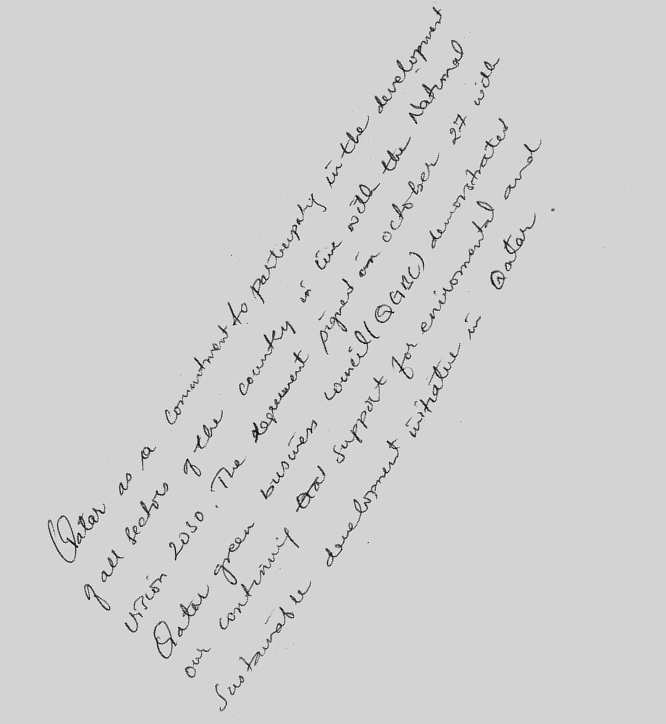 Qatar as a comitment to participaty in the development
of all sectors of the country in line with the National
vision 2030. The agreement signed on october 27 with
Qatar green business council (QGBC) demonstrated
our continuing support for enviromental and
Sustainable development initiative in Qatar.